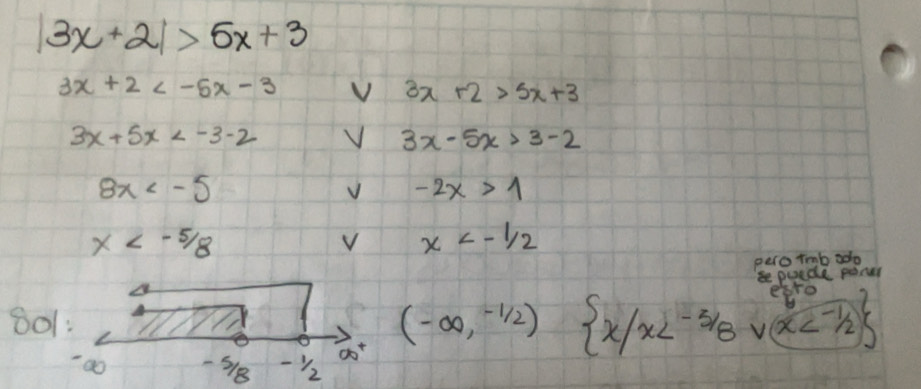 |3x+2| > 5x+3
3x+2 < -5x-3 ∨ 3x+2 > 5x+3
3x+5x < -3-2 ∨ 3x-5x > 3-2
8x < -5 ∨ -2x > 1
x < -5/8 ∨ x < -1/2
pero tmb solo
se puede poner
esto
Sol: (-∞, -1/2) {x/x< -5/8 ∨ x< -1/2}
-∞ -5/8 -1/2 ∞+